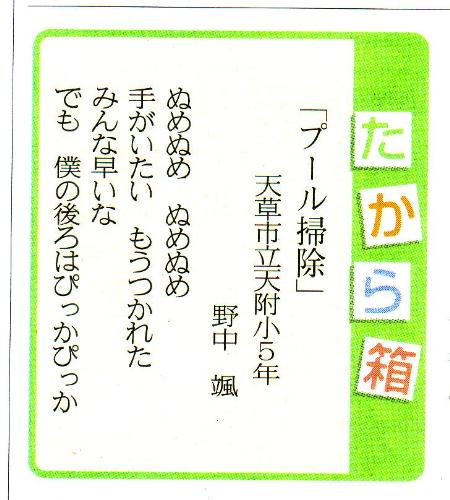 たから箱
「プール掃除」
天草市立天附小5年
野中　颯
ぬめぬめ　ぬめぬめ
手がいたい　もうつかれた
みんな早いな
でも　僕の後ろはぴっかぴっか